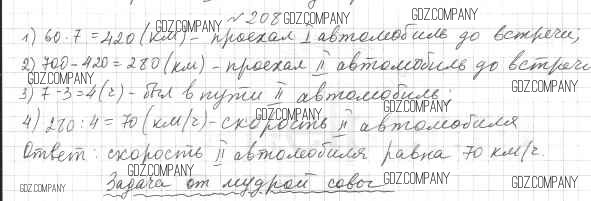 № 208
1) 60 · 7 = 420 (км) - проехал I автомобиль до встречи;
2) 700 - 420 = 280 (км) - проехал II автомобиль до встречи
3) 7 - 3 = 4 (ч) - был в пути II автомобиль.
4) 280 : 4 = 70 (км/ч) - скорость II автомобиля
Ответ: скорость II автомобиля равна 70 км/ч.
Задача от мудрой совы
GDZ.COMPANY
GDZ.COMPANY
GDZ.COMPANY
GDZ.COMPANY
GDZ.COMPANY
GDZ.COMPANY
GDZ.COMPANY
GDZ.COMPANY
GDZ.COMPANY
GDZ.COMPANY
GDZ.COMPANY
GDZ.COMPANY